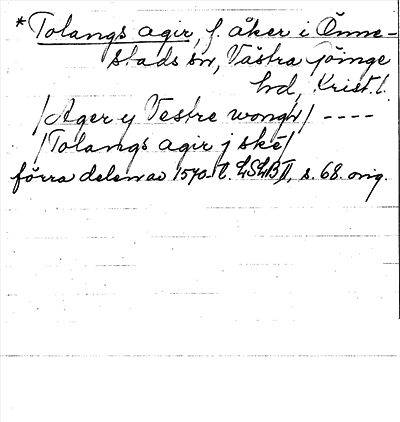 * Tolangs agir, f. åker i Önne-
stads sn, Västra Göinge
hd, Krist. l.
/Ager y Vestre wongh/ ----
/Tolangs agir j ske/
förra delen av 1570-t. LSLB II, s. 68. orig.